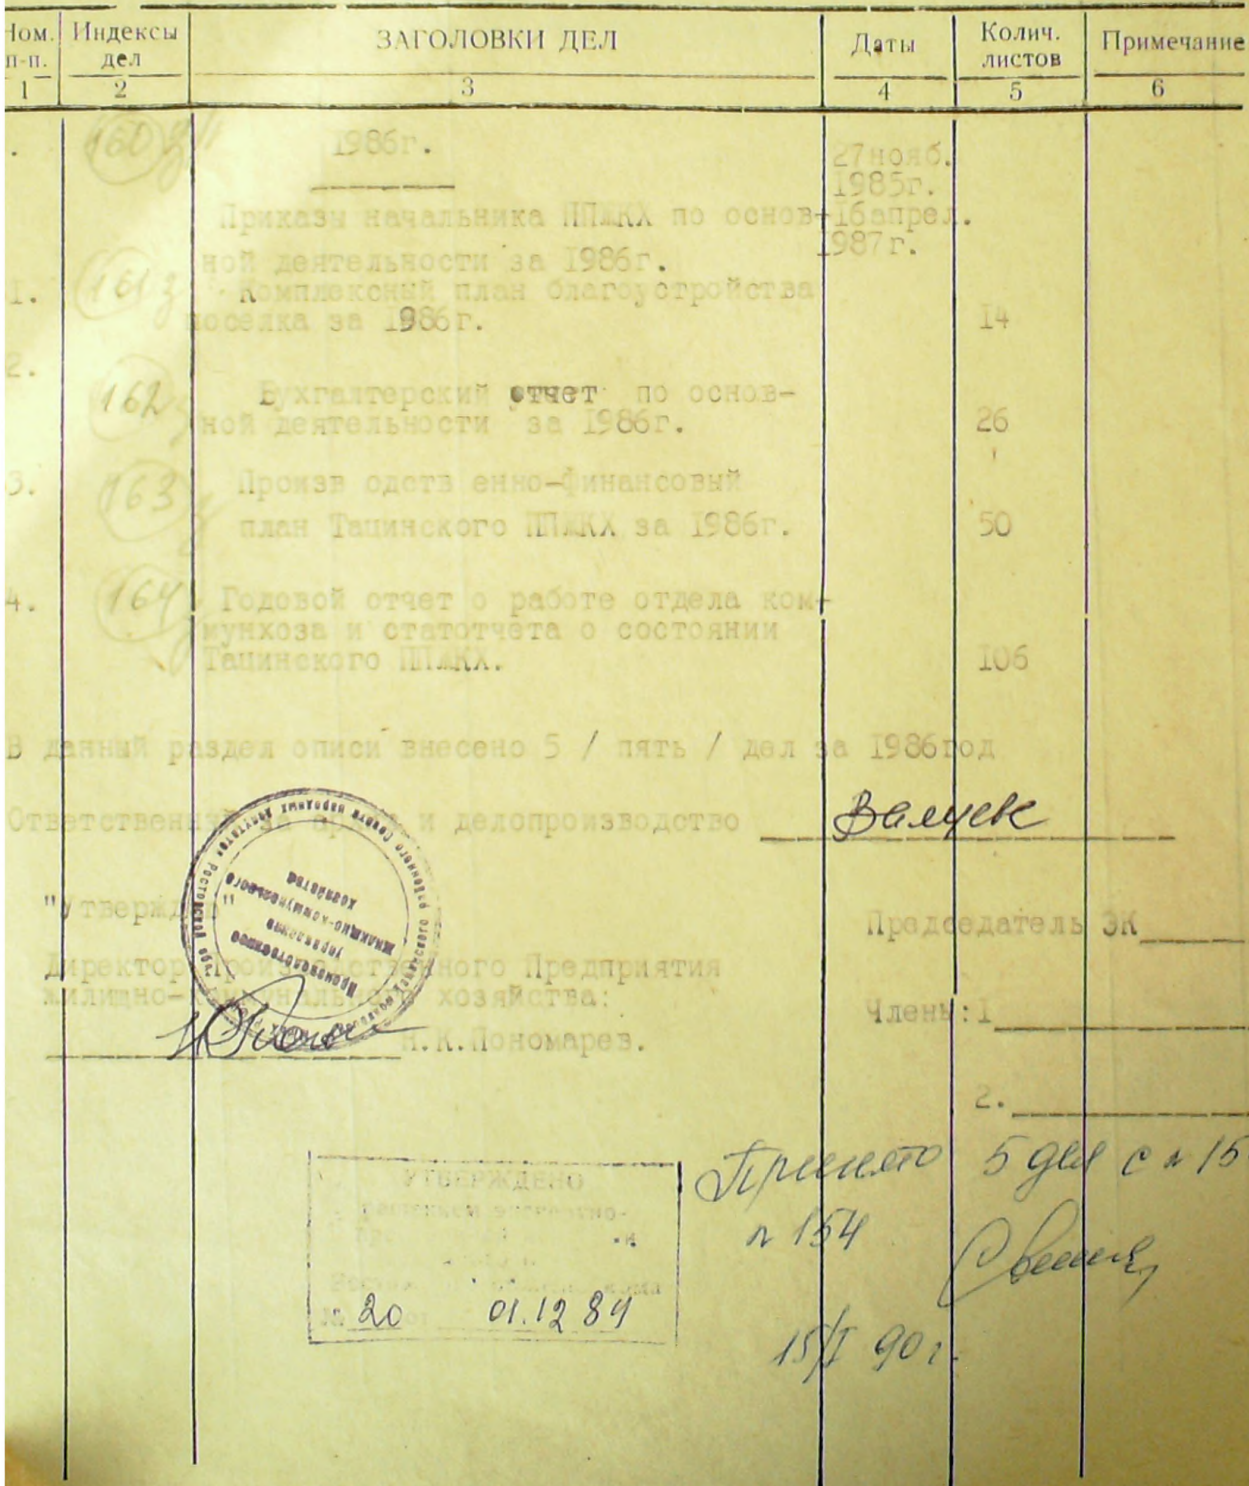 Ном. п-п. Индексы дел ЗАГОЛОВКИ ДЕЛ Даты Колич. листов Примечание
1 2 3 4 5 6
160 1986г.
27нояб.
1985г.
Приказы начальника ППЖКХ по основ- 16апрел.
1987г.
ной деятельности за 1986г.
1. 161 Комплексный план благоустройства
поселка за 1986г. 14
2.
162 Бухгалтерский отчет по основ-
ной деятельности за 1986г. 26
3. 163 Произв одств енно-финансовый
план Тацинского ППЖКХ за 1986г. 50
4. 164 Годовой отчет о работе отдела ком-
мунхоза и статотчета о состоянии
Тацинского ППЖКХ. 106
В данный раздел описи внесено 5 / пять / дел за 1986год
Ответственный за архив и делопроизводство
"Утверждаю"
Председатель ЭК
Директор Производственного Предприятия
жилищно-коммунального хозяйства:
Члены:1
Н.К.Пономарев.
2.
Производственное
управление
жилищно-коммунального
хозяйства
УТВЕРЖДЕНО
решением экспертно-
20 01.12 89
Принято 5 дел с № 15
№ 154
15/I 90г.